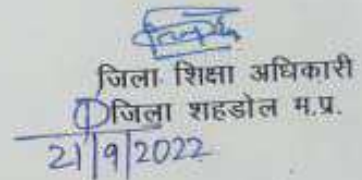 जिला शिक्षा अधिकारी
जिला शहडोल म.प्र.
21/9/2022